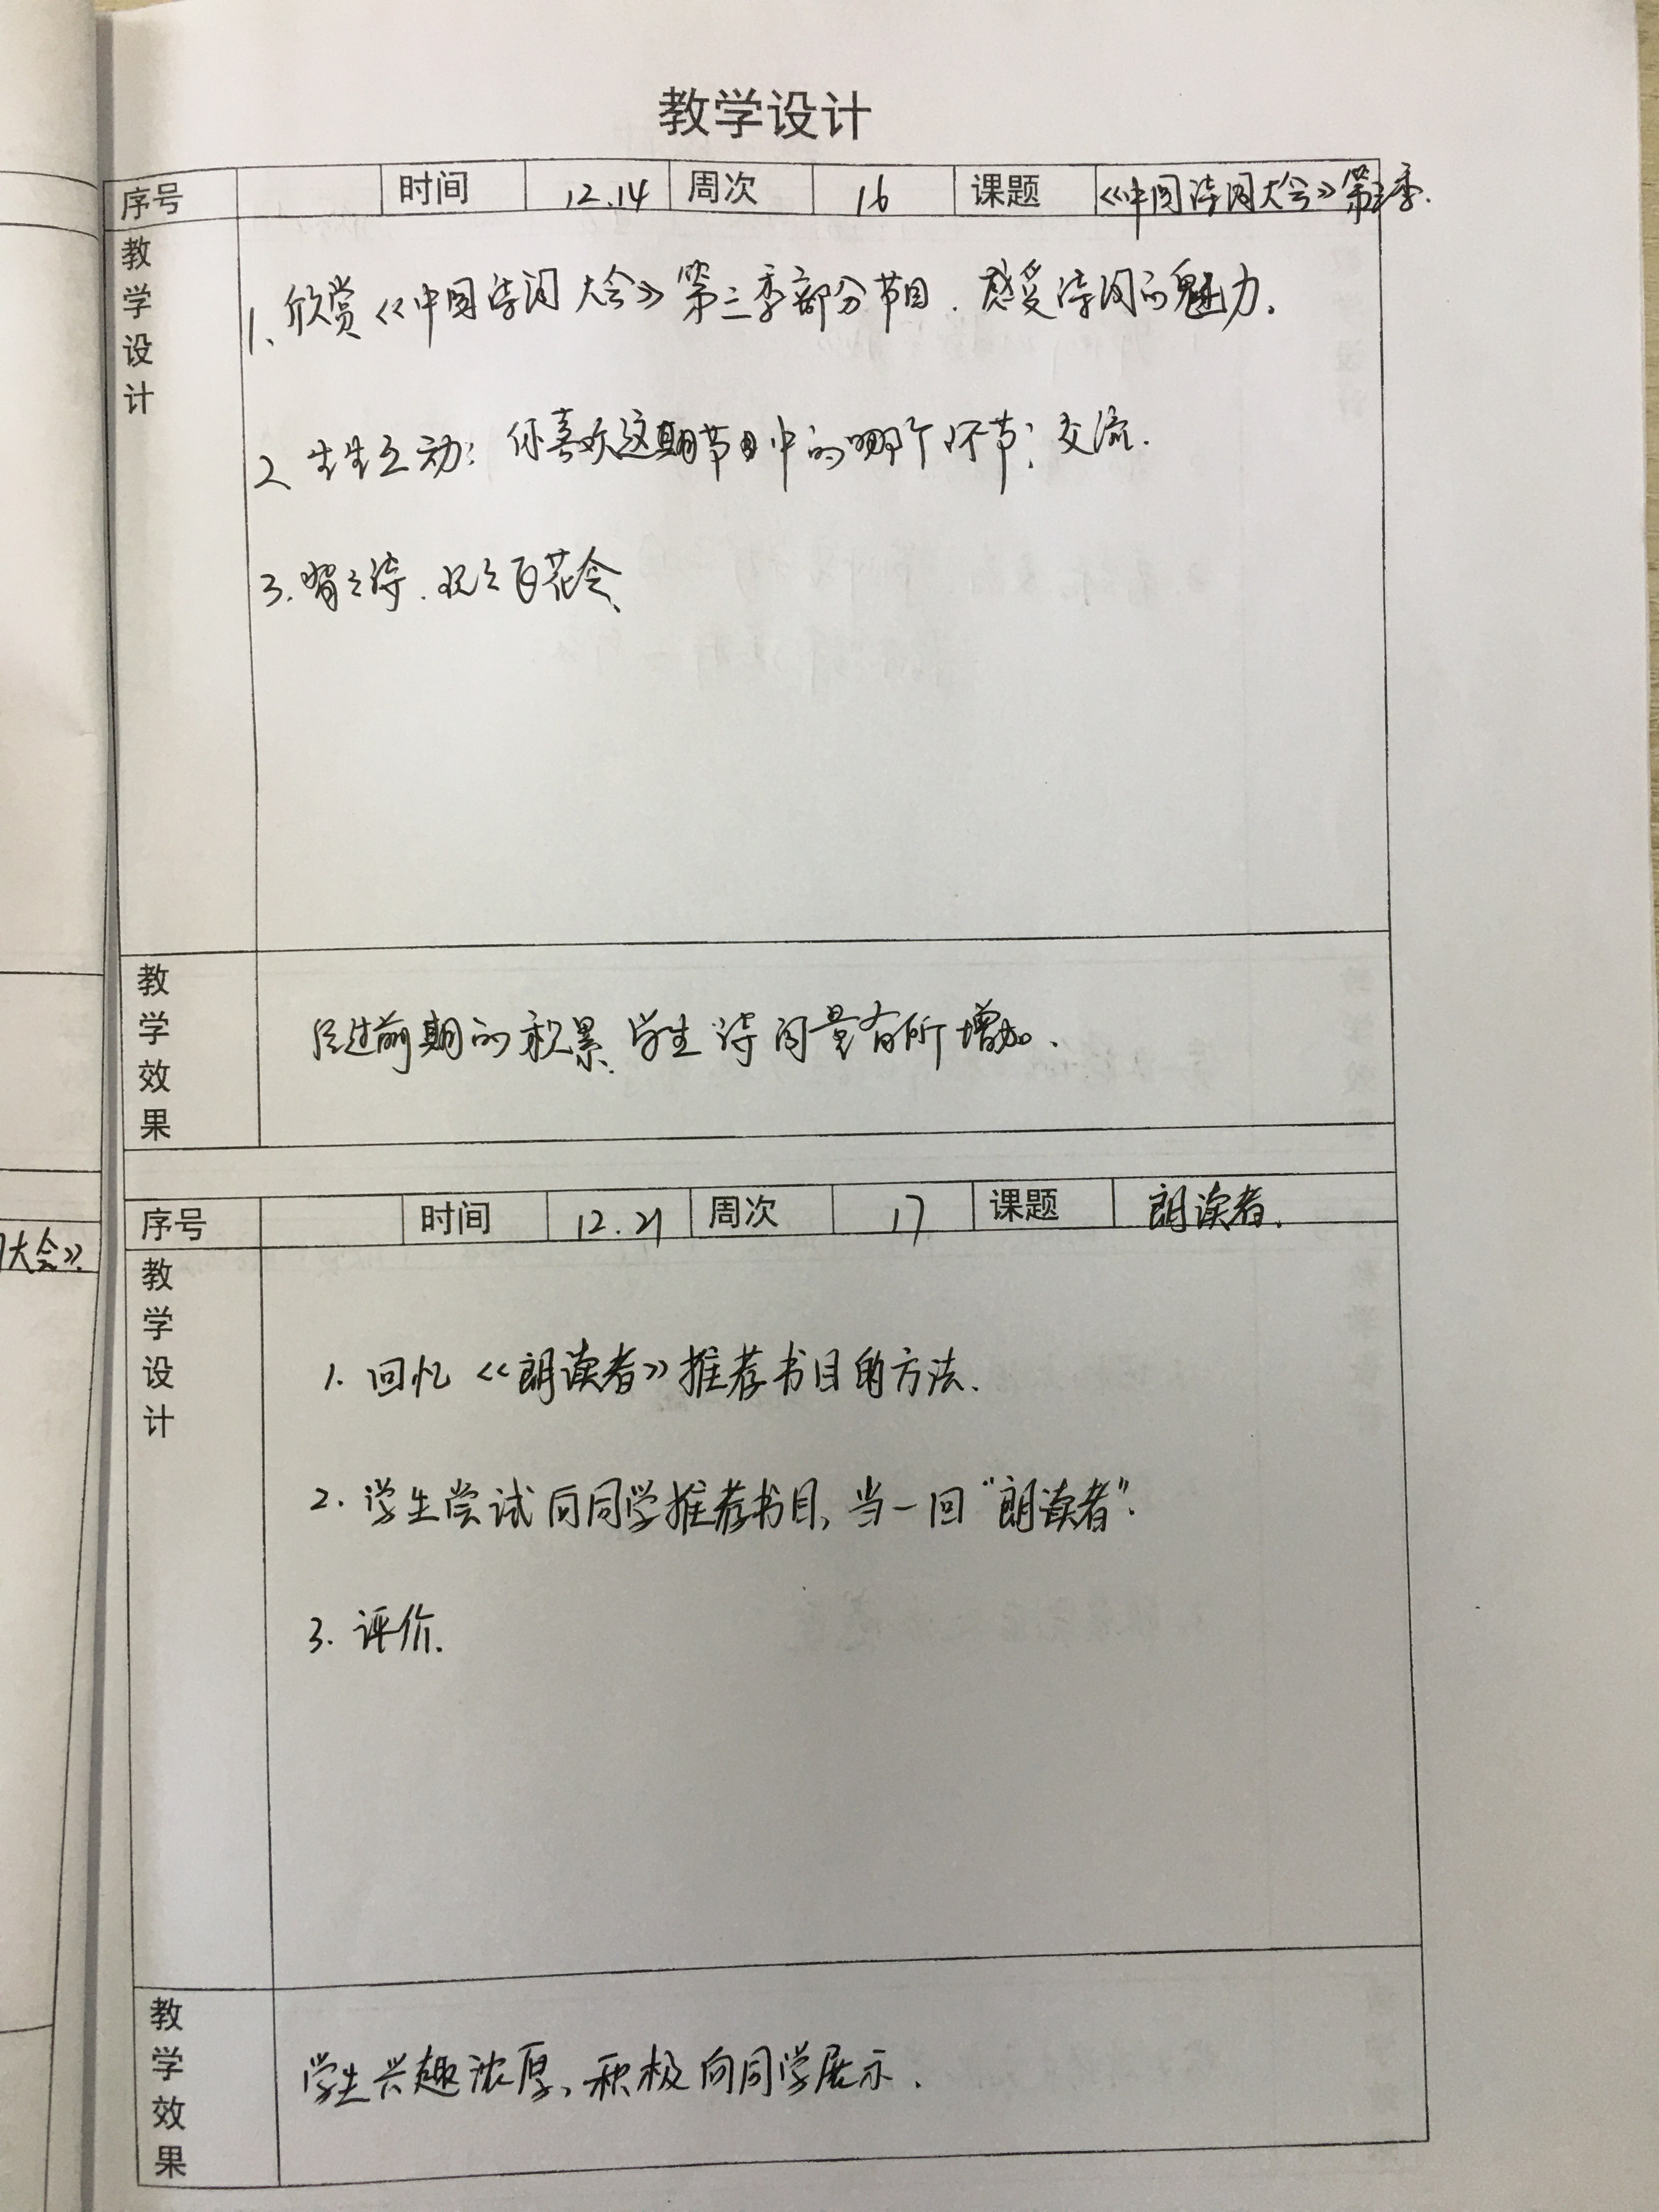 教学设计
序号 时间 12.14 周次 16 课题 《中国诗词大会》第三季.
教学设计
1、欣赏《中国诗词大会》第二季部分节目.感受诗词的魅力.
2、生生互动:你喜欢这期节目中的哪个环节;交流.
3.背之诗.玩之百花令
教学效果
经过前期的积累.学生诗词量有所增加.
序号 时间 12.21 周次 17 课题 朗读者.
大会》.
教学设计
1.回忆《朗读者》推荐书目的方法.
2.学生尝试向同学推荐书目,当一回“朗读者”.
3.评价.
教学效果
学生兴趣浓厚,积极向同学展示.